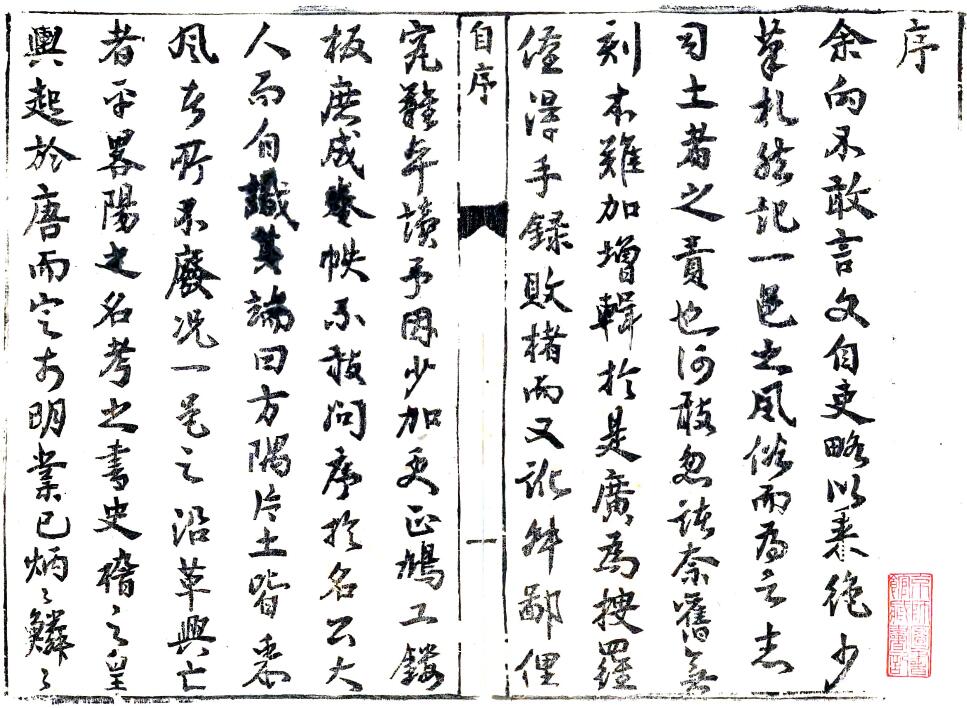 序
余向不敢言文自吏略以来絶少
筆札然記一邑之風俗而為之志
司土者之責也何敢忽諸奈舊無
刻本難加增輯於是廣為搜羅
僅得手録敗楮而又訛舛鄙俚
自序
一
究難卒讀予因少加更正鳩工鏤
板庶成卷帙不敢問序於名公大
人而自識其端曰方隅片土皆秉
風在所不廢况一邑之沿革興亡
者乎畧陽之名考之書史稽之皇
輿起於唐而定於明業已炳〻鱗〻